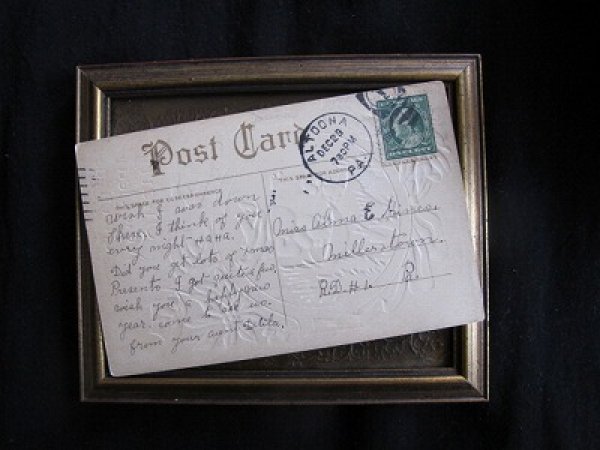 Post Card
ALTOONA
DEC 29
730 PM
PA.
THIS SPACE FOR
wish I was down
there, I think of you
every night HaHa.
Did you get lots of xmas
Presents I got quite a few,
wish you a happy new
year. come to see us.
from your aunt
Miss Alma E.
Millerstown.
R.D.#1. P.